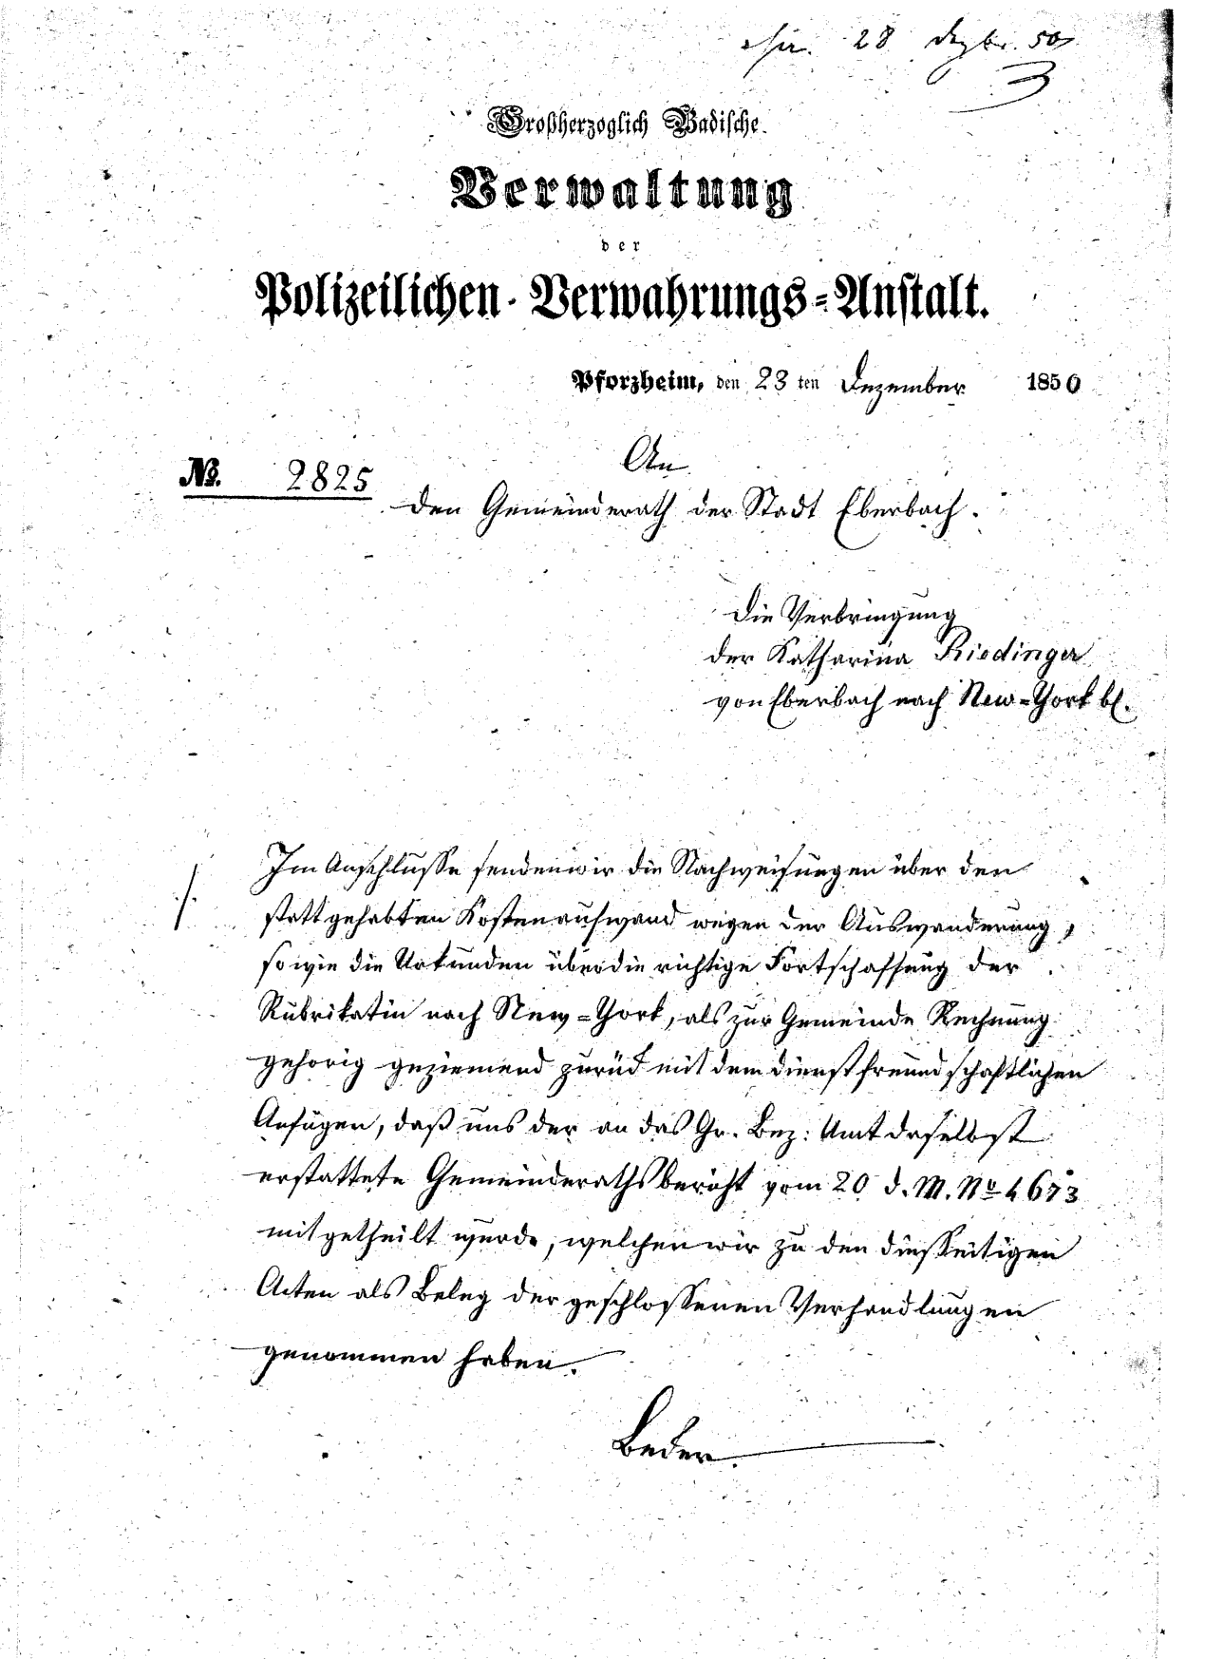 28 Dezbr. 50
Großherzoglich Badische
Verwaltung
der
Polizeilichen-Verwahrungs-Anstalt.
Pforzheim, den 23 ten Dezember 1850
An
No. 2825
den Gemeinderath der Stadt Eberbach.
Die Verbringung
der Katharina Riedinger
von Eberbach nach New-York btr.
Im Anschlusse senden wir die Nachweisungen über den
stattgehabten Kostenaufwand wegen der Auswanderung,
sowie die Urkunden über die richtige Fortschaffung der
Rubrikatin nach New-York, als zur Gemeinde Rechnung
gehörig geziemend zurück mit dem dienstfreundschaftlichen
Anfügen, daß uns der an das Gr. Bez: Amt daselbst
erstattete Gemeinderathsbericht vom 20 d. M. No 4673
mitgetheilt wurde, welchen wir zu den diesseitigen
Acten als Beleg der geschlossenen Verhandlungen
genommen haben.